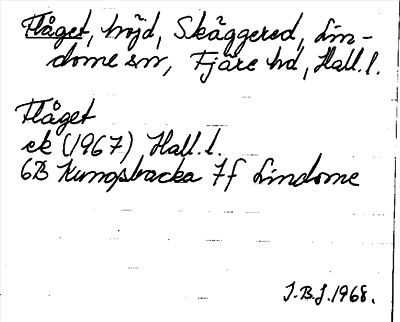 Flåget, höjd, Skäggered, Lin-
dome sn, Fjäre hd, Hall.l.
Flåget
ek (1967) Hall.l.
6B Kungsbacka 7f Lindome
J.B.J. 1968.